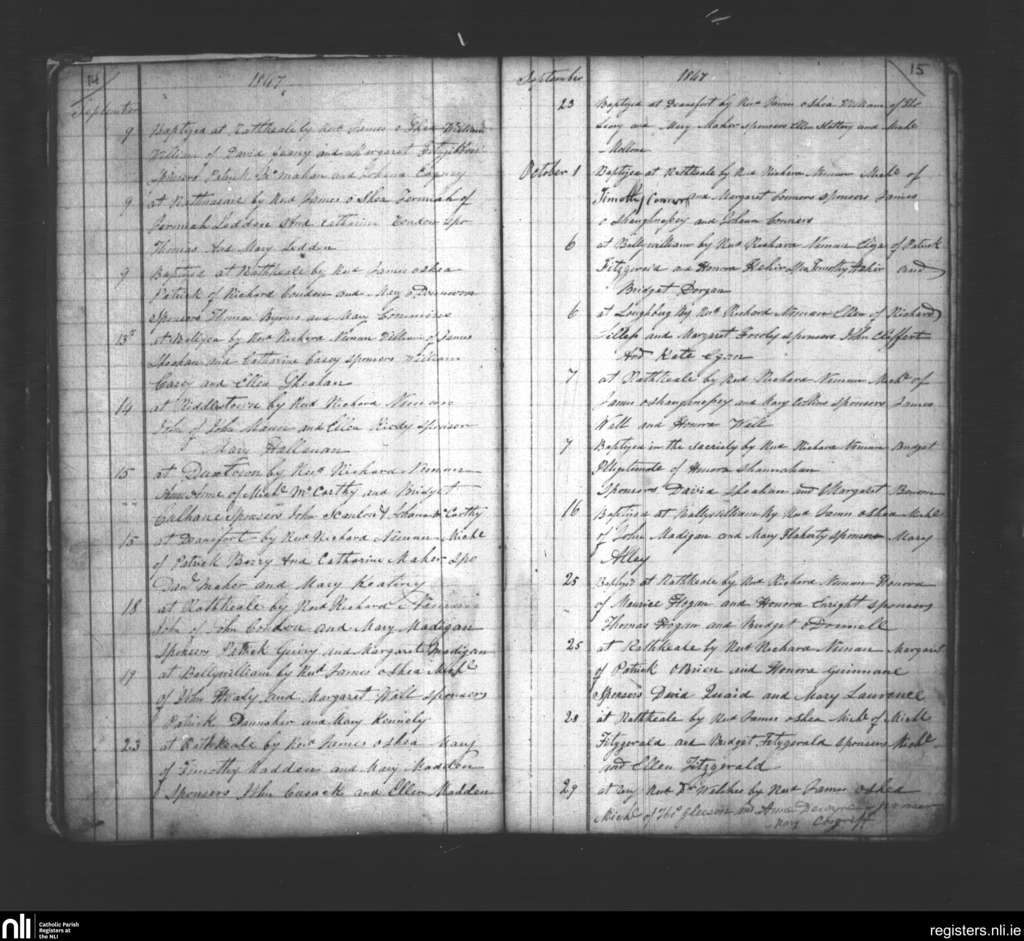 14
1847
September
9 Baptized at Rathkeale by Revd James o Shea William
William of David Geary and Margaret Fitzgibbon
Sponsors Patrick Mc Mahon and Johana
9 at by Revd James o Shea Jeremiah of
Jeremiah Ledden And Catharine Condon Spo
Thomas And Mary Ledden
9 Baptized at Rathkeale by Revd James oshea
Patrick of Richard Condon and Mary
sponsors Thomas Byrns and Mary Commins
13 at by Revd Richard Nunan William of James
Sheahan and Catharine Casey sponsors William
Casey and Ellen Sheahan
14 at Riddlestown by Revd Richard Nunan
John of John and Ellen sponsor
Mary Hallinan
15 at by Revd Richard Nunan
Anne of Michl McCarthy and Bridget
Culhane sponsors John Scanlon & Johana McCarthy
15 at by Revd Richard Nunan Michl
of Patrick Barry And Catharine Maher Spo
Danl Maher and Mary Keating
18 at Rathkeale by Revd Richard Nunan
John of John Condon and Mary Madigan
Sponsors Patrick Geary and Margaret Madigan
19 at Ballywilliam by Revd James oShea Michl
of John Healy and Margaret Wall sponsors
Patrick Dannaher and Mary Kennely
23 at Rathkeale by Revd James oshea Mary
of Timothy Madden and Mary Madden
Sponsors John Cusack and Ellen Madden
September 1847 15
23 Baptized at by Revd James oShea William of
and Mary Maher sponsors Ellen Slattery and Michl

October 1 Baptized at Rathkeale by Revd Richard Nunan Michl of
Timothy Connors and Margaret Connors sponsors James
o shaughnessy and Johana Connors
6 at Ballywilliam by Revd Richard Nunan Eliza of Patrick
Fitzgerald and Honora Hahir Timothy Hahir and
Bridget Dorgan
6 at by Revd Richard Nunan Ellen of Richard
and Margaret sponsors John Cliffort
And Kate Egan
7 at Rathkeale by Revd Richard Nunan Michl of
James o shaughnessy and Mary Collins sponsors James
Wall and Honora Wall
7 Baptized in the Sacristy by Revd Richard Nunan Bridget
Illegitimate of Honora Shaunahan
Sponsors David Sheahan and Margaret
16 Baptized at Ballywilliam By Revd James oshea Michl
of John Madigan and Mary Flaherty sponsors Mary
Alley
25 Baptized at Rathkeale by Revd Richard Nunan Honora
of Maurice Hogan and Honora Enright Sponsors
Thomas Hogan and Bridget oDonnell
25 at Rathkeale by Revd Richard Nunan Margaret
of Patrick OBrien and Honora Guinnane
Sponsors David Quaid and Mary Laurence
28 at Rathkeale by Revd James oshea Michl of Michl
Fitzgerald and Bridget Fitzgerald Sponsors Michl
and Ellen Fitzgerald
29 at by Revd James oshea
Michl of Thos Gleeson and sponsor
Mary
nli
Catholic Parish
Registers at
the NLI
registers.nli.ie